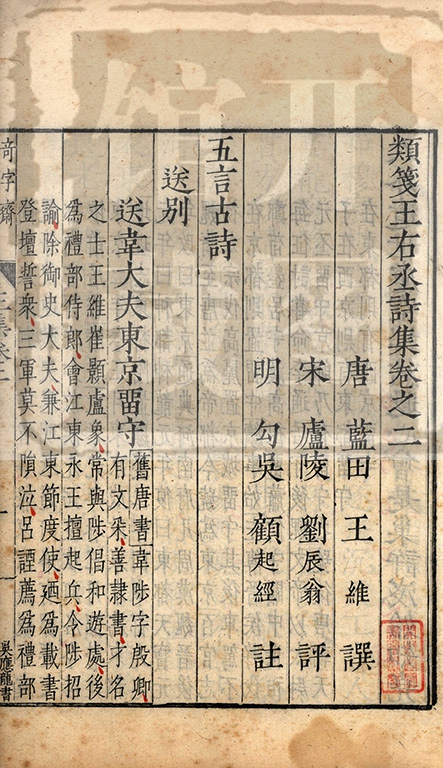 類箋王右丞詩集卷之二
唐藍田王維譔
宋廬陵劉辰翁評
明勾吳顧起經註
五言古詩
送别
送韋大夫東京留守
舊唐書韋陟字殷卿
有文采善隷書才名
之士王維崔顥盧象常與陟倡和遊處後
為禮部侍郎會江東永王擅起兵令陟招
諭除御史大夫兼江東節度使廼為載書
登壇誓衆三軍莫不隕泣呂諲薦為禮部
奇字齋
吳應龍書